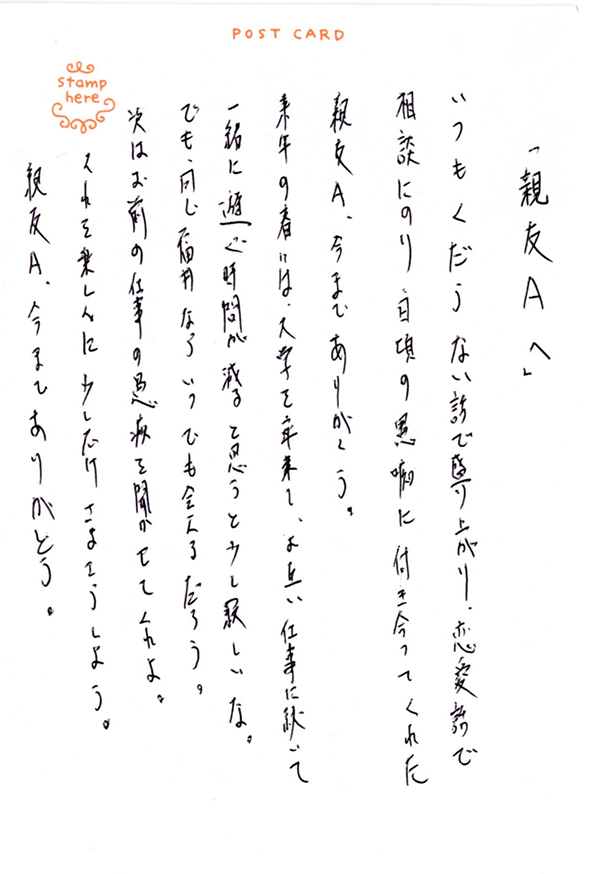 POST CARD
stamp
here
「親友Aへ」
いつもくだらない話で盛り上がり、恋愛話で
相談にのり、日頃の愚痴に付き合ってくれた
親友A、今までありがとう。
来年の春には、大学を卒業し、お互い仕事に就いて
一緒に遊ぶ時間が減ると思うと少し寂しいな。
でも、同じ福井ならいつでも会えるだろう。
次はお前の仕事の愚痴を聞かせてくれよ。
それを楽しみに少しだけさよならしよう。
親友A、今までありがとう。